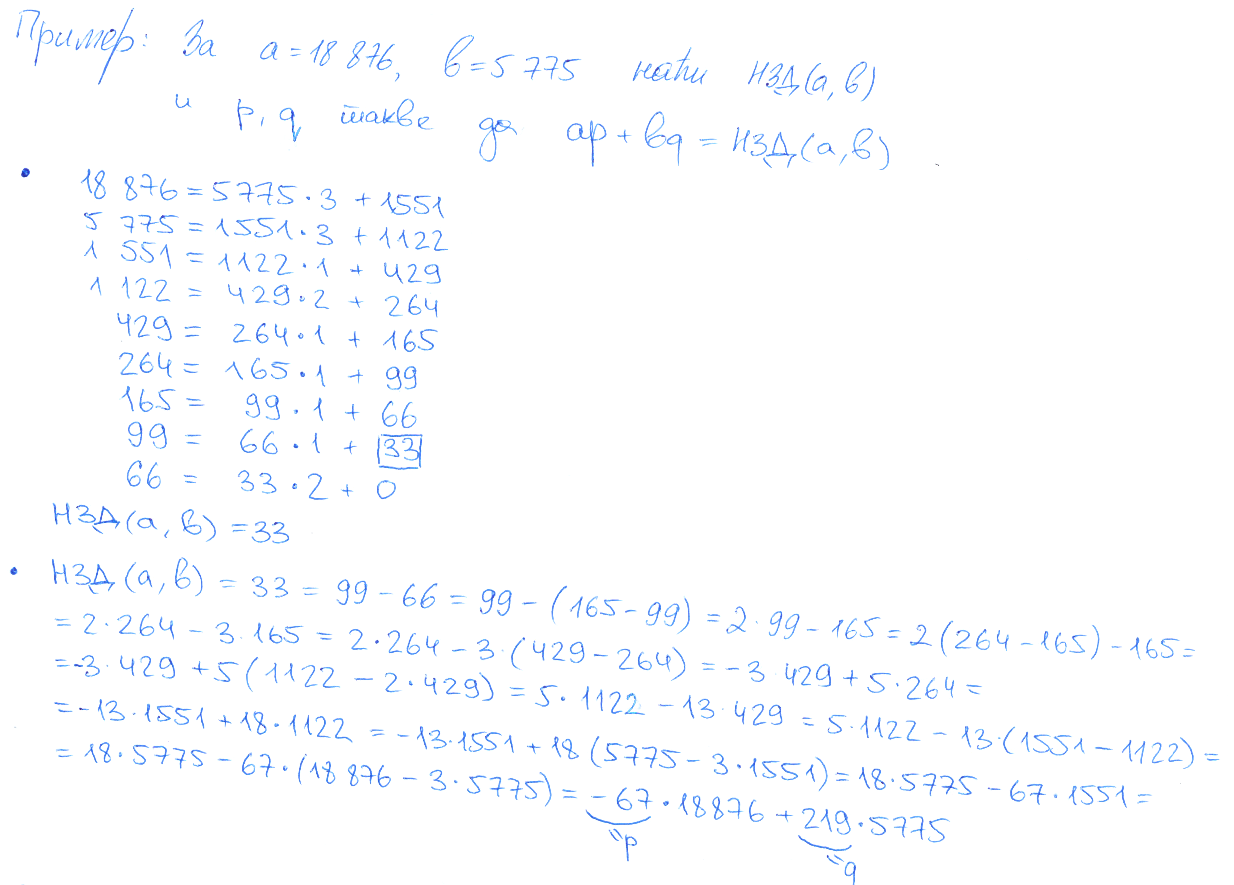 Пример: За a = 18 876, b = 5 775 наћи НЗД(a, b)
и p, q такве да ap + bq = НЗД(a, b)
• 18 876 = 5775 · 3 + 1551
5 775 = 1551 · 3 + 1122
1 551 = 1122 · 1 + 429
1 122 = 429 · 2 + 264
429 = 264 · 1 + 165
264 = 165 · 1 + 99
165 = 99 · 1 + 66
99 = 66 · 1 + 33
66 = 33 · 2 + 0
НЗД(a, b) = 33
• НЗД(a, b) = 33 = 99 − 66 = 99 − (165 − 99) = 2 · 99 − 165 = 2(264 − 165) − 165 =
= 2 · 264 − 3 · 165 = 2 · 264 − 3 · (429 − 264) = −3 · 429 + 5 · 264 =
= −3 · 429 + 5(1122 − 2 · 429) = 5 · 1122 − 13 · 429 = 5 · 1122 − 13 · (1551 − 1122) =
= −13 · 1551 + 18 · 1122 = −13 · 1551 + 18(5775 − 3 · 1551) = 18 · 5775 − 67 · 1551 =
= 18 · 5775 − 67 · (18 876 − 3 · 5775) = −67 · 18876 + 219 · 5775
= p
= q